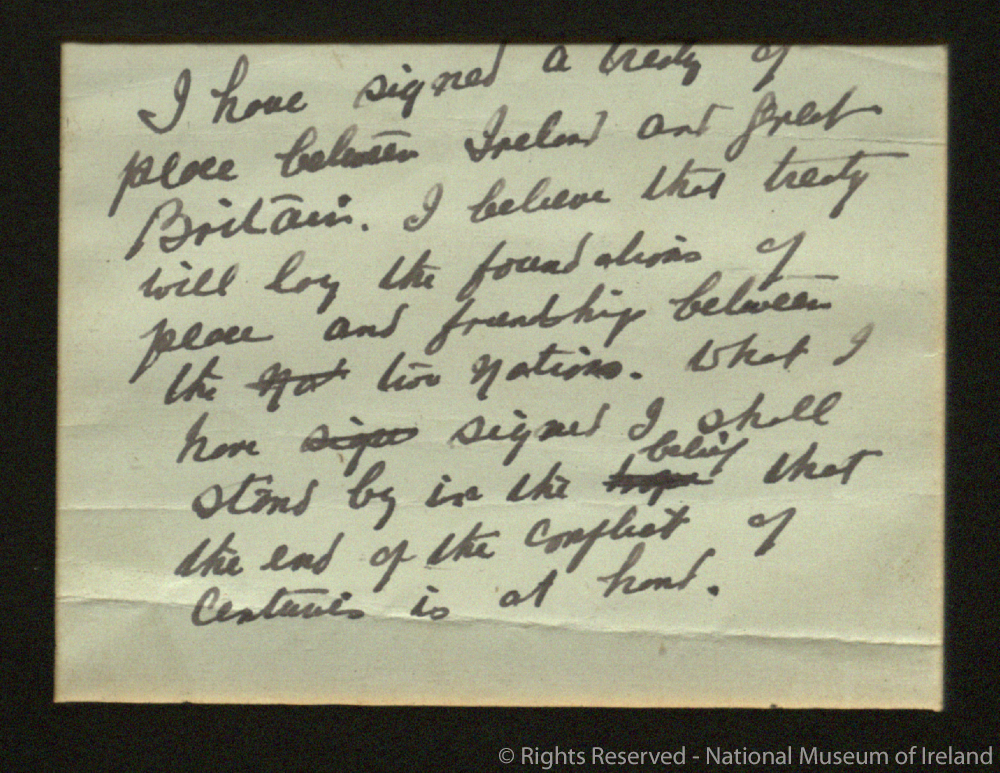 I have signed a treaty of
peace between Ireland and Great
Britain. I believe that treaty
will lay the foundations of
peace and friendship between
the Nat two Nations. What I
have sign signed I shall
belief
stand by in the hope that
the end of the conflict of
centuries is at hand.
© Rights Reserved - National Museum of Ireland